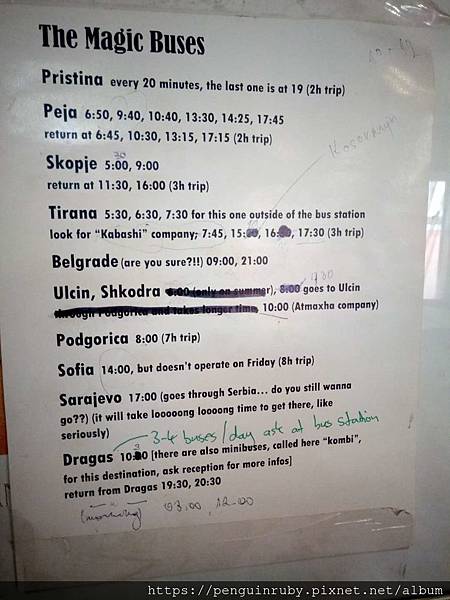 The Magic Buses
Pristina every 20 minutes, the last one is at 19 (2h trip)
Peja 6:50, 9:40, 10:40, 13:30, 14:25, 17:45
return at 6:45, 10:30, 13:15, 17:15 (2h trip)
30
Skopje 5:00, 9:00
return at 11:30, 16:00 (3h trip)
Tirana 5:30, 6:30, 7:30 for this one outside of the bus station
look for "Kabashi" company; 7:45, 15: 16: 17:30 (3h trip)
Belgrade (are you sure?!!) 09:00, 21:00
Ulcin, Shkodra 6:00 (only on summer), 8:00 goes to Ulcin
through Podgorica and takes longer time, 10:00 (Atmaxha company)
Podgorica 8:00 (7h trip)
Sofia 14:00, but doesn't operate on Friday (8h trip)
Sarajevo 17:00 (goes through Serbia... do you still wanna
go??) (it will take looooong loooong time to get there, like
seriously)
3-4 buses/day ask at bus station
Dragas [there are also minibuses, called here "kombi",
for this destination, ask reception for more infos]
return from Dragas 19:30, 20:30
03.00, 12.00
https://penguinruby.pixnet.net/album